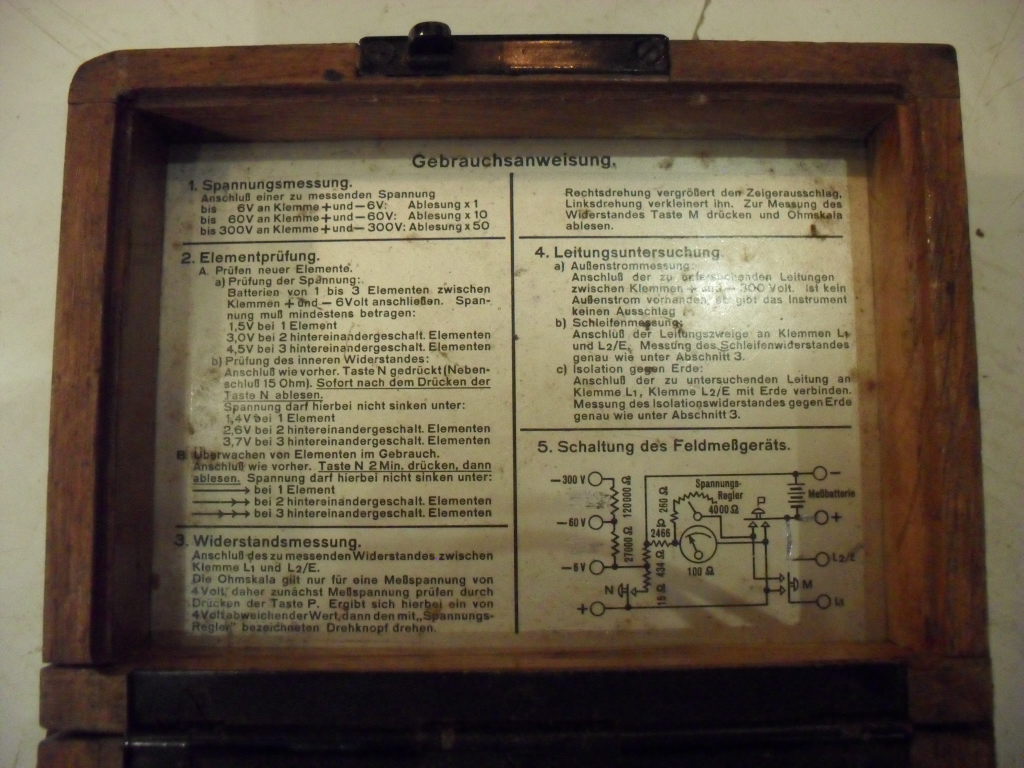 Gebrauchsanweisung.
1. Spannungsmessung.
Anschluß einer zu messenden Spannung
bis 6V an Klemme + und – 6V: Ablesung x 1
bis 60V an Klemme + und – 60V: Ablesung x 10
bis 300V an Klemme + und – 300V: Ablesung x 50
2. Elementprüfung.
A. Prüfen neuer Elemente.
a) Prüfung der Spannung:
Batterien von 1 bis 3 Elementen zwischen
Klemmen + und – 6Volt anschließen. Span-
nung muß mindestens betragen:
1,5V bei 1 Element
3,0V bei 2 hintereinandergeschalt. Elementen
4,5V bei 3 hintereinandergeschalt. Elementen
b) Prüfung des inneren Widerstandes:
Anschluß wie vorher. Taste N gedrückt (Neben-
schluß 15 Ohm). Sofort nach dem Drücken der
Taste N ablesen.
Spannung darf hierbei nicht sinken unter:
1,4V bei 1 Element
2,6V bei 2 hintereinandergeschalt. Elementen
3,7V bei 3 hintereinandergeschalt. Elementen
B. Überwachen von Elementen im Gebrauch.
Anschluß wie vorher. Taste N 2 Min. drücken, dann
ablesen. Spannung darf hierbei nicht sinken unter:
bei 1 Element
bei 2 hintereinandergeschalt. Elementen
bei 3 hintereinandergeschalt. Elementen
3. Widerstandsmessung.
Anschluß des zu messenden Widerstandes zwischen
Klemme L1 und L2/E.
Die Ohmskala gilt nur für eine Meßspannung von
4 Volt, daher zunächst Meßspannung prüfen durch
Drücken der Taste P. Ergibt sich hierbei ein von
4 Volt abweichender Wert, dann den mit „Spannungs-
Regler" bezeichneten Drehknopf drehen.
Rechtsdrehung vergrößert den Zeigerausschlag,
Linksdrehung verkleinert ihn. Zur Messung des
Widerstandes Taste M drücken und Ohmskala
ablesen.
4. Leitungsuntersuchung.
a) Außenstrommessung:
Anschluß der zu untersuchenden Leitungen
zwischen Klemmen + und – 300 Volt. Ist kein
Außenstrom vorhanden, so gibt das Instrument
keinen Ausschlag
b) Schleifenmessung:
Anschluß der Leitungszweige an Klemmen L1
und L2/E. Messung des Schleifenwiderstandes
genau wie unter Abschnitt 3.
c) Isolation gegen Erde:
Anschluß der zu untersuchenden Leitung an
Klemme L1, Klemme L2/E mit Erde verbinden.
Messung des Isolationswiderstandes gegen Erde
genau wie unter Abschnitt 3.
5. Schaltung des Feldmeßgeräts.
– 300 V
120000 Ω
– 60 V
27000 Ω
– 6V
+
N
15 Ω
434 Ω
2466
260 Ω
Spannungs-
Regler
4000 Ω
100 Ω
P
–
Meßbatterie
+
L2/E
M
L1